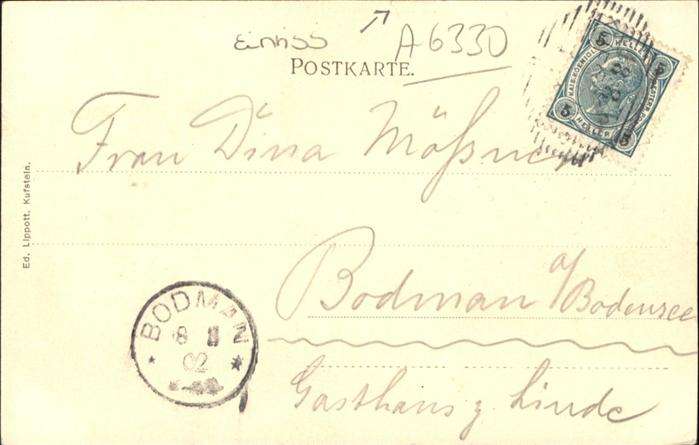 Einriss A6330
POSTKARTE.
5 HELLER 5
KAIS. KÖNIGL.
5 HELLER 5
Frau Dina Mößner
Bodman a/Bodensee
Gasthaus z Linde
BODMAN
8 02
Ed. Lippott, Kufstein.